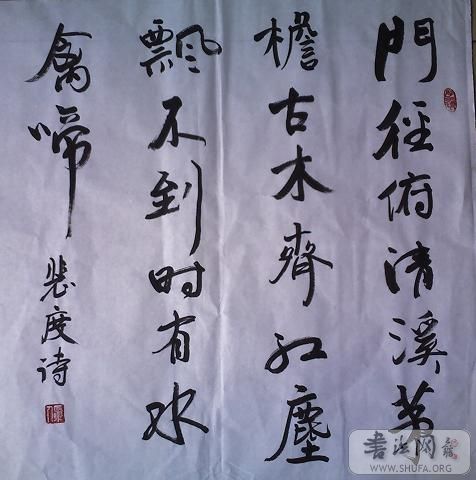 門径俯清溪茅
檐古木齊红塵
飄不到时有水
禽啼
裴度诗
书法网
WWW.SHUFA.ORG